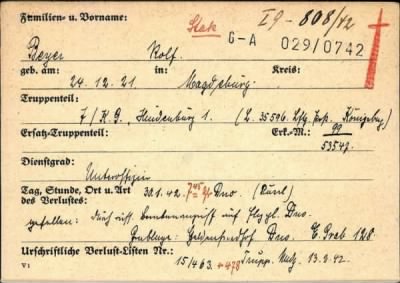 Familien- u. Vorname: Stak I 9 - 808/42
G-A 029/0742
Beyer Rolf.
geb. am: in: Kreis:
24.12.21. Magdeburg.
Truppenteil:
7/K.G. Hindenburg 1. (L. 35596 Lftg. Post. Königsberg)
Ersatz-Truppenteil: Erk.-M.: 99
53547.
Dienstgrad:
Unteroffizier
Tag, Stunde, Ort u. Art 30.1.42. 7 45 Uhr Dno (Rußl.)
des Verlustes:
gefallen: durch russ. Bombenangriff auf Flugpl. Dno.
Grablage: Heldenfriedhof Dno. E. Grab 128
Urschriftliche Verlust-Listen Nr.:
15/463. + 478 13.2.42.
V 1